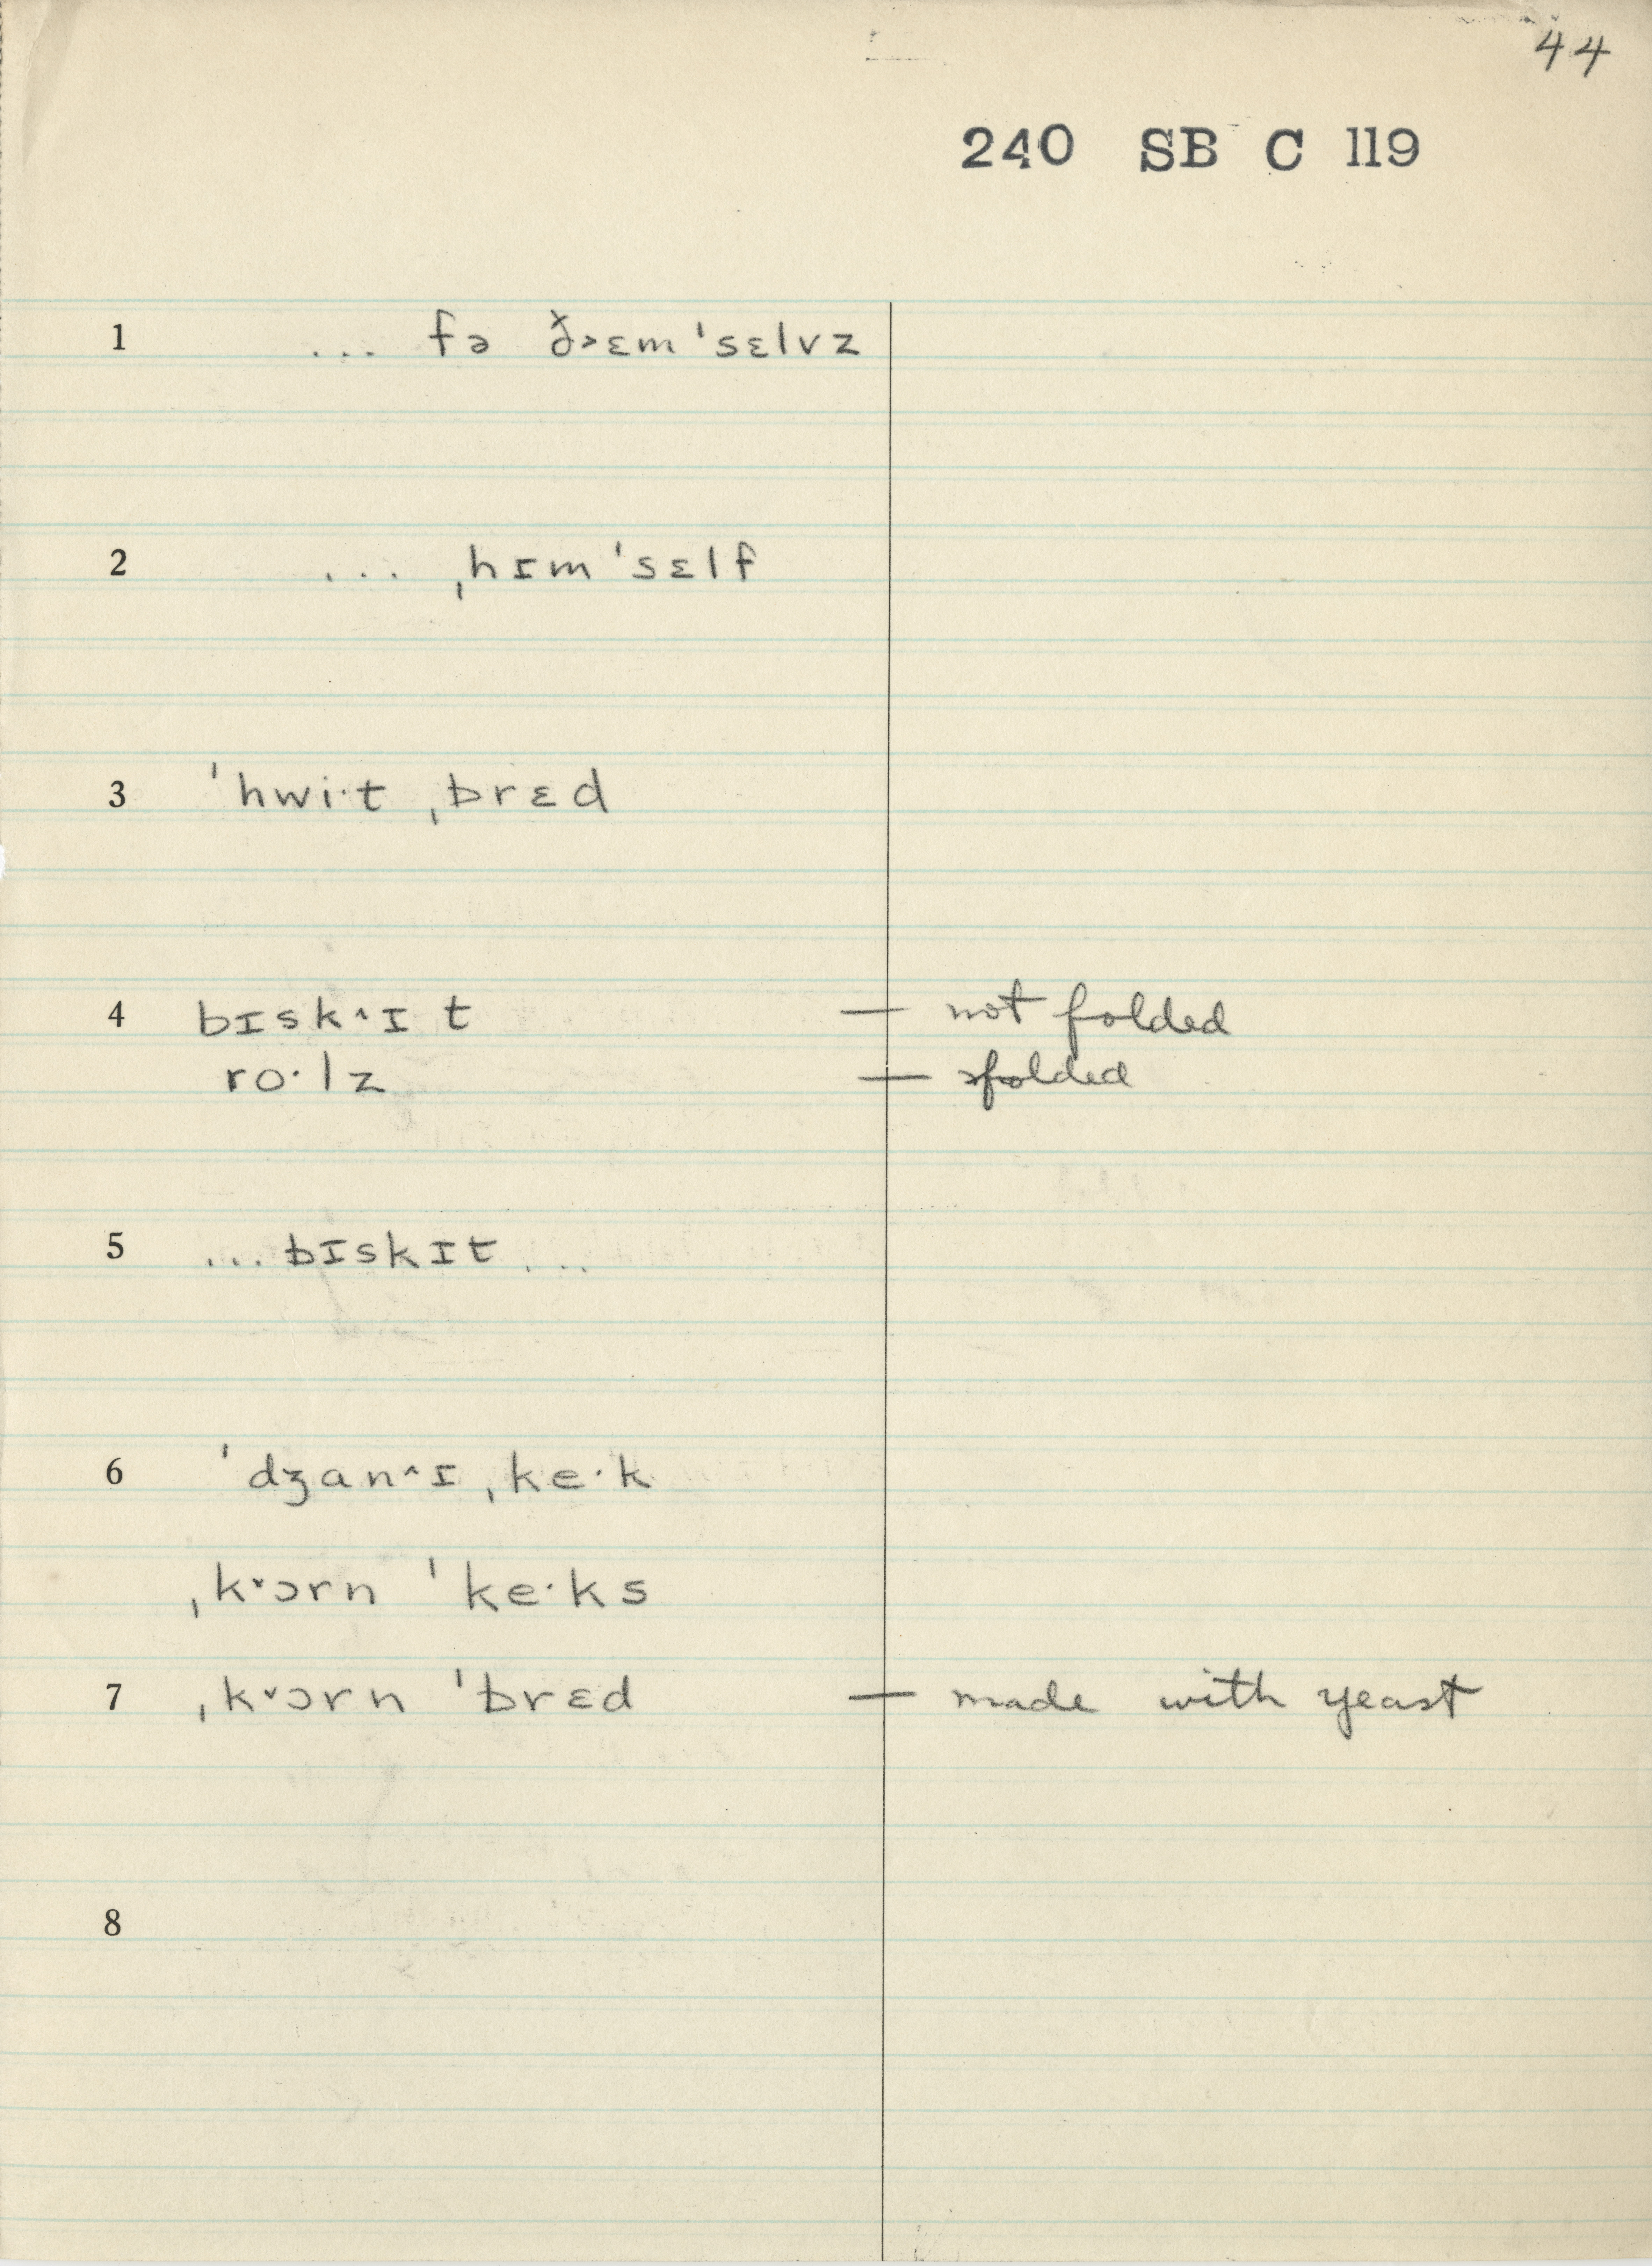 44
240 SB C 119
1 ... fə ð˃ɛmˈsɛlvz
2 ... ˌhɪmˈsɛlf
3 ˈhwi·t ˌbrɛd
4 bɪsk˄ɪt — not folded
ro·lz — folded
5 ...bɪskɪt...
6 ˈdʒan˄ɪ ˌke·k
ˌk˅ɔrn ˈke·ks
7 ˌk˅ɔrn ˈbrɛd — made with yeast
8